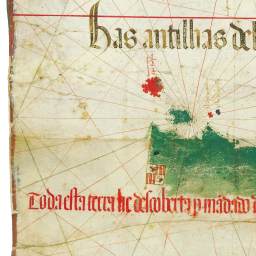 has antilhas del
Toda esta terra he descoberta p mãdado